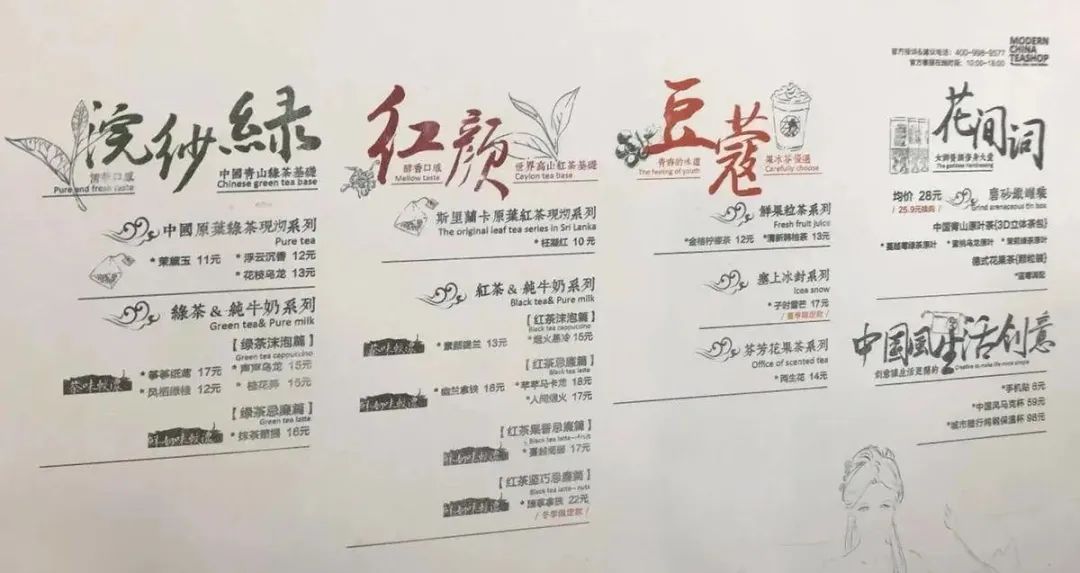 官方投诉&建议电话：400-998-9577
官方客服在线时间：10:00-18:00
MODERN
CHINA
TEASHOP
浣纱緑
清香口感
Pure and fresh taste
中國青山綠茶基礎
Chinese green tea base
中國原葉綠茶現沏系列
Pure tea
* 茉黛玉 11元 * 浮云沉香 12元
* 花枝乌龙 13元
綠茶 & 純牛奶系列
Green tea& Pure milk
【绿茶沫泡篇】
Green tea cappuccino
* 筝筝纸鸢 17元 * 声声乌龙 15元
* 风栖绿桂 12元 * 桂花弄 15元
【绿茶忌廉篇】
Green tea latte
* 抹茶菩提 16元
红颜
醇香口感
Mellow taste
世界高山紅茶基礎
Ceylon tea base
斯里蘭卡原葉紅茶現沏系列
The original leaf tea series in Sri Lanka
* 枉凝红 10 元
紅茶 & 純牛奶系列
Black tea& Pure milk
【红茶沫泡篇】
Black tea cappuccino
* 素颜锡兰 13元 * 烟火易冷 15元
【红茶忌廉篇】
Black tea latte
* 幽兰拿铁 16元 * 苹苹马卡龙 18元
* 人间烟火 17元
【红茶果香忌廉篇】
Black tea latte--fruit
17元
【红茶坚巧忌廉篇】
Black tea latte--nuts
22元
/ 冬季限定款 /
豆蔻
青春的味道
The feeling of youth
果冰茶 慢選
Carefully choose
鮮果粒茶系列
Fresh fruit juice
* 金桔柠檬茶 12元 * 清新韩柚茶 13元
塞上冰封系列
Icea snow
* 子时雪芒 17元
/ 夏季限定款 /
芬芳花果茶系列
Office of scented tea
* 两生花 14元
花间词
均价 28元
/ 25.9元换购 /
磨砂
Grind arenaceous tin box
中国青山原叶茶{3D立体茶包}
* 蔓越莓绿茶原叶 * 蜜桃乌龙原叶 * 茉莉绿茶原叶
德式花果茶{颗粒装}
*蓝莓调配
中国風生活创意
Creative to make life more simple
*手机贴 6元
*中国风马克杯 59元
98元